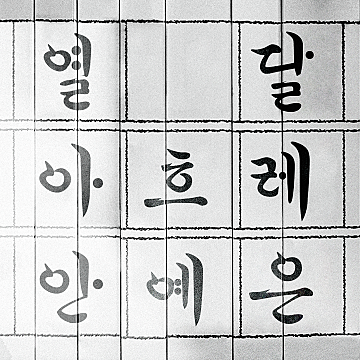 열 달
아흐레
안에은